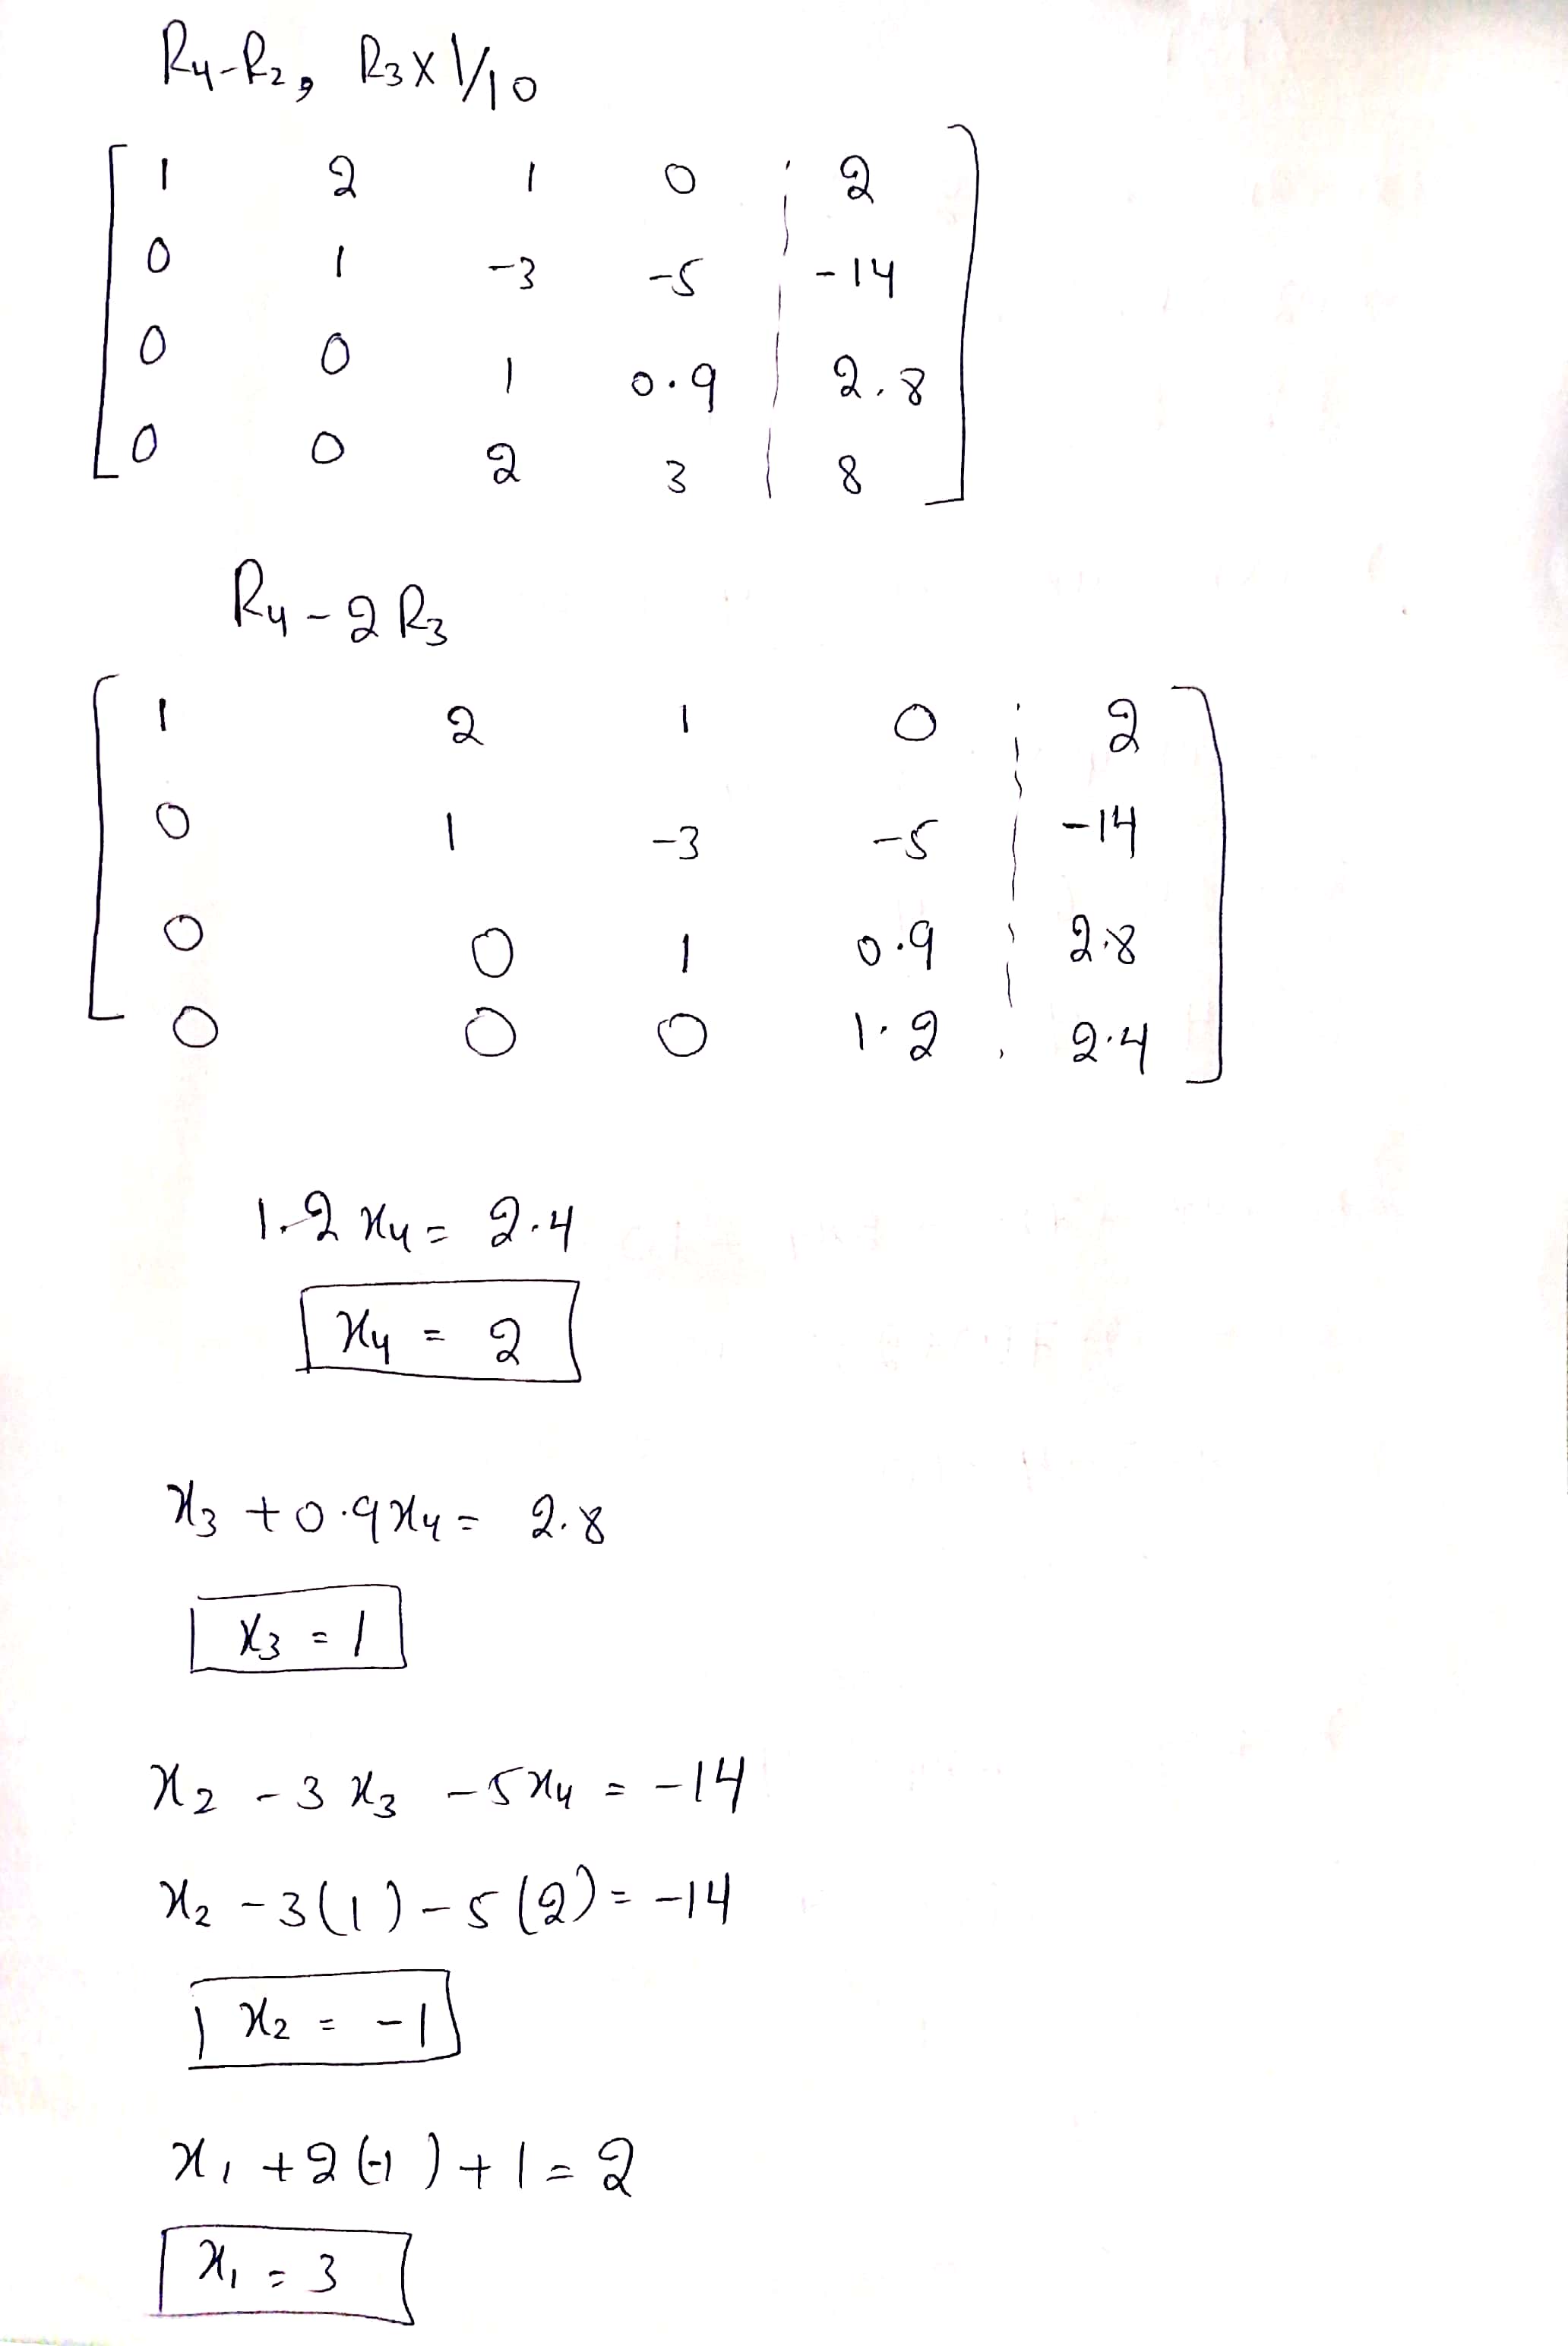 R4-R2, R3 X 1/10
1 2 1 0 2
0 1 -3 -5 -14
0 0 1 0.9 2.8
0 0 2 3 8
R4 - 2 R3
1 2 1 0 2
0 1 -3 -5 -14
0 0 1 0.9 2.8
0 0 0 1.2 2.4
1.2 x4 = 2.4
x4 = 2
x3 + 0.9x4 = 2.8
x3 = 1
x2 - 3 x3 - 5x4 = -14
x2 - 3(1) - 5(2) = -14
x2 = -1
x1 + 2(-1) + 1 = 2
x1 = 3